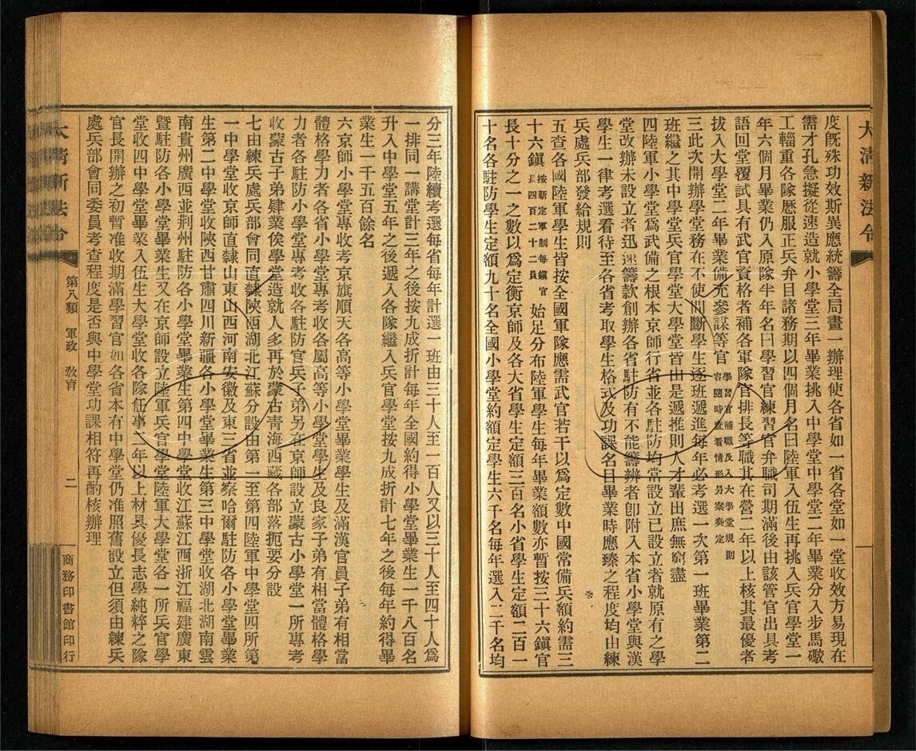 大清新法令
度既殊功效斯異應統籌全局畫一辦理使各省如一省各堂如一堂收效方易現在
需才孔急擬從速造就小學堂三年畢業挑入中學堂中學堂二年畢業分入步馬礮
工輜重各隊歷服正兵弁目諸務期以四個月名曰陸軍入伍生再挑入兵官學堂一
年六個月畢業仍入原隊半年名曰學習官練習官弁職司期滿後由該管官出具考
語回堂覆試具有武官資格者補各軍隊官排長等職其在營二年以上核其最優者
拔入大學堂二年畢業備充參謀等官學習官補職及入大學堂規則容隨時察看情形另案奏定
三此次開辦學堂務在不使間斷學生逐班遞進每年必考選一次第一班畢業第二
班繼之其中學堂兵官學堂大學堂皆由是遞推則人才輩出庶無窮盡
四陸軍小學堂爲武備之根本京師行省並各駐防均當設立已設立者就原有之學
堂改辦未設立者迅速籌款創辦各省駐防有不能籌辦者卽附入本省小學堂與漢
學生一律考選看待至各省考取學生格式及功課名目畢業時應臻之程度均由練
兵處兵部發給規則
五查各國陸軍學生皆按全國軍隊應需武官若干以爲定數中國常備兵額約需三
十六鎭按新定軍制每鎭官長四百二十二員始足分布陸軍學生每年畢業額數亦暫按三十六鎭官
長十分之一之數以爲定衡京師及各大省學生定額三百名小省學生定額二百一
十名各駐防學生定額九十名全國小學堂約額定學生六千名每年選入二千名均
分三年陸續考選每省每年計選一班由三十人至一百人又以三十人至四十人爲
一排同一講堂計三年之後按九成折計每年全國約得小學堂畢業生一千八百名
升入中學堂五年之後遞入各隊繼入兵官學堂按九成折計七年之後每年約得畢
業生一千五百餘名
六京師小學堂專收考京旗順天各高等小學堂畢業學生及滿漢官員子弟有相當
體格學力者各省小學堂專考收各屬高等小學堂學生及良家子弟有相當體格學
力者各駐防小學堂專考收各駐防官兵子弟另在京師設立蒙古小學堂一所專考
收蒙古子弟肄業俟學堂造就人多再於蒙古青海西藏各部落扼要分設
七由練兵處兵部會同直隸陝西湖北江蘇分設由第一至第四陸軍中學堂四所第
一中學堂收京師直隸山東山西河南安徽及東三省並察哈爾駐防各小學堂畢業
生第二中學堂收陝西甘肅四川新疆各小學堂畢業生第三中學堂收湖北湖南雲
南貴州廣西並荆州駐防各小學堂畢業生第四中學堂收江蘇江西浙江福建廣東
曁駐防各小學堂畢業生又在京師設立陸軍兵官學堂陸軍大學堂各一所兵官學
堂收四中學堂畢業入伍生大學堂收各隊任事二年以上材具優長志學純粹之隊
官長開辦之初暫准收期滿學習官如各省本有中學堂仍准照舊設立但須由練兵
處兵部會同委員考查程度是否與中學堂功課相符再酌核辦理
大清新法令
第八類 軍政 敎育
二
商務印書館印行